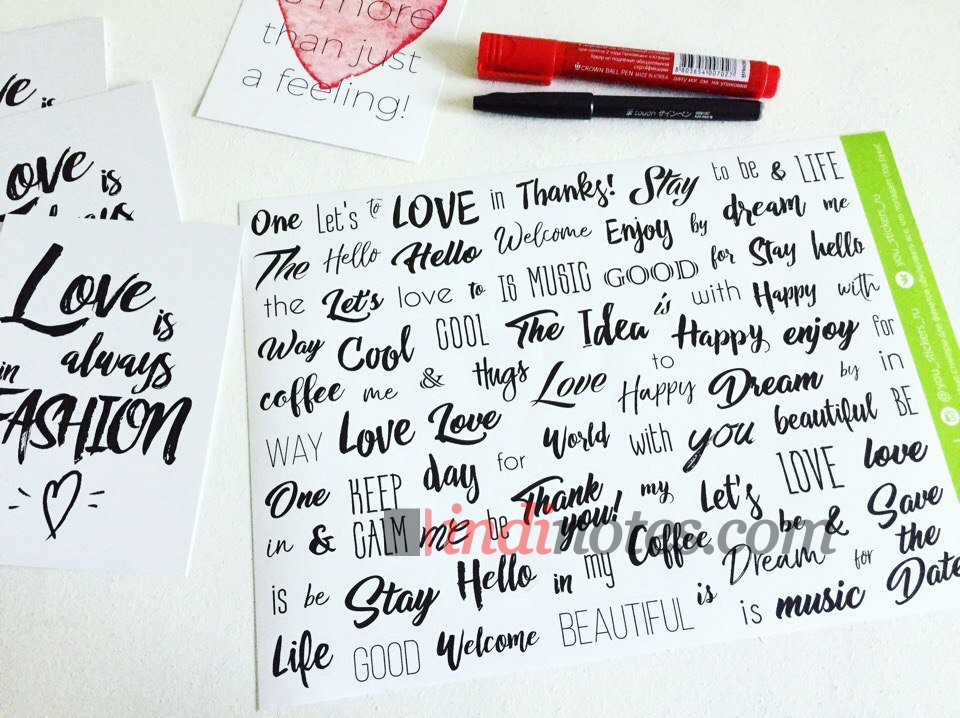 is more
than just
a feeling!
CROWN BALL PEN MADE IN KOREA
8 803654 007027
touch サインペン
ve is
Love is
Always
Love
is
in always
FASHION
One Let's to LOVE in Thanks! Stay to be & LIFE
The Hello Hello Welcome Enjoy by dream me
the Let's love to IS MUSIC GOOD for Stay hello
Way Cool COOL The Idea is with Happy with
coffee me & Hugs Love to Happy enjoy for
WAY Love Love Happy Dream by in
One KEEP day for World with you beautiful BE
in & CALM me be Thank you! my Let's LOVE love
is be Stay Hello in my Coffee be & Save
Life GOOD Welcome BEAUTIFUL is Dream for the
is music Date
@you_stickers.ru
you_stickers.ru
kindinotes.com